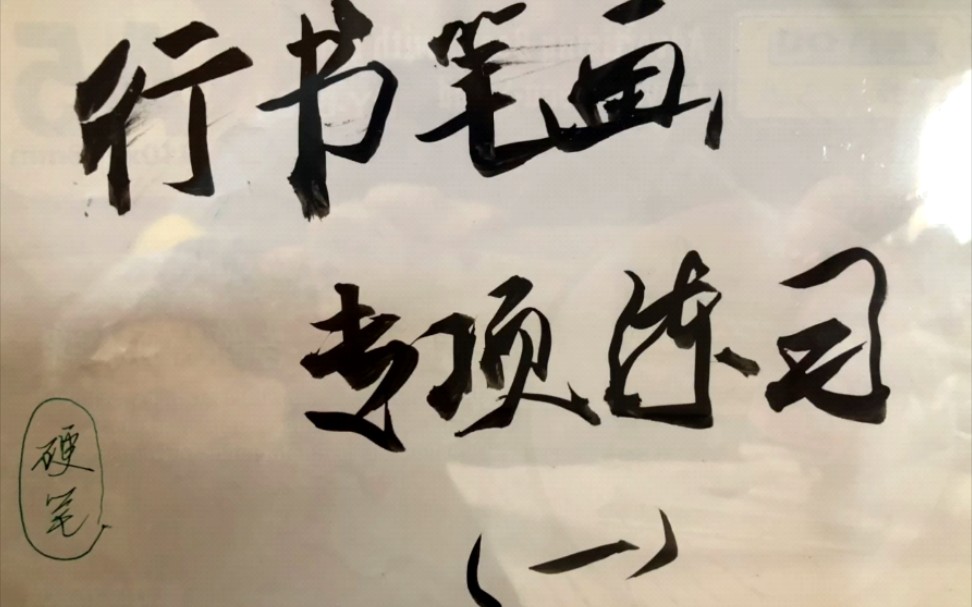 行书笔画
专项练习
硬笔
（一）